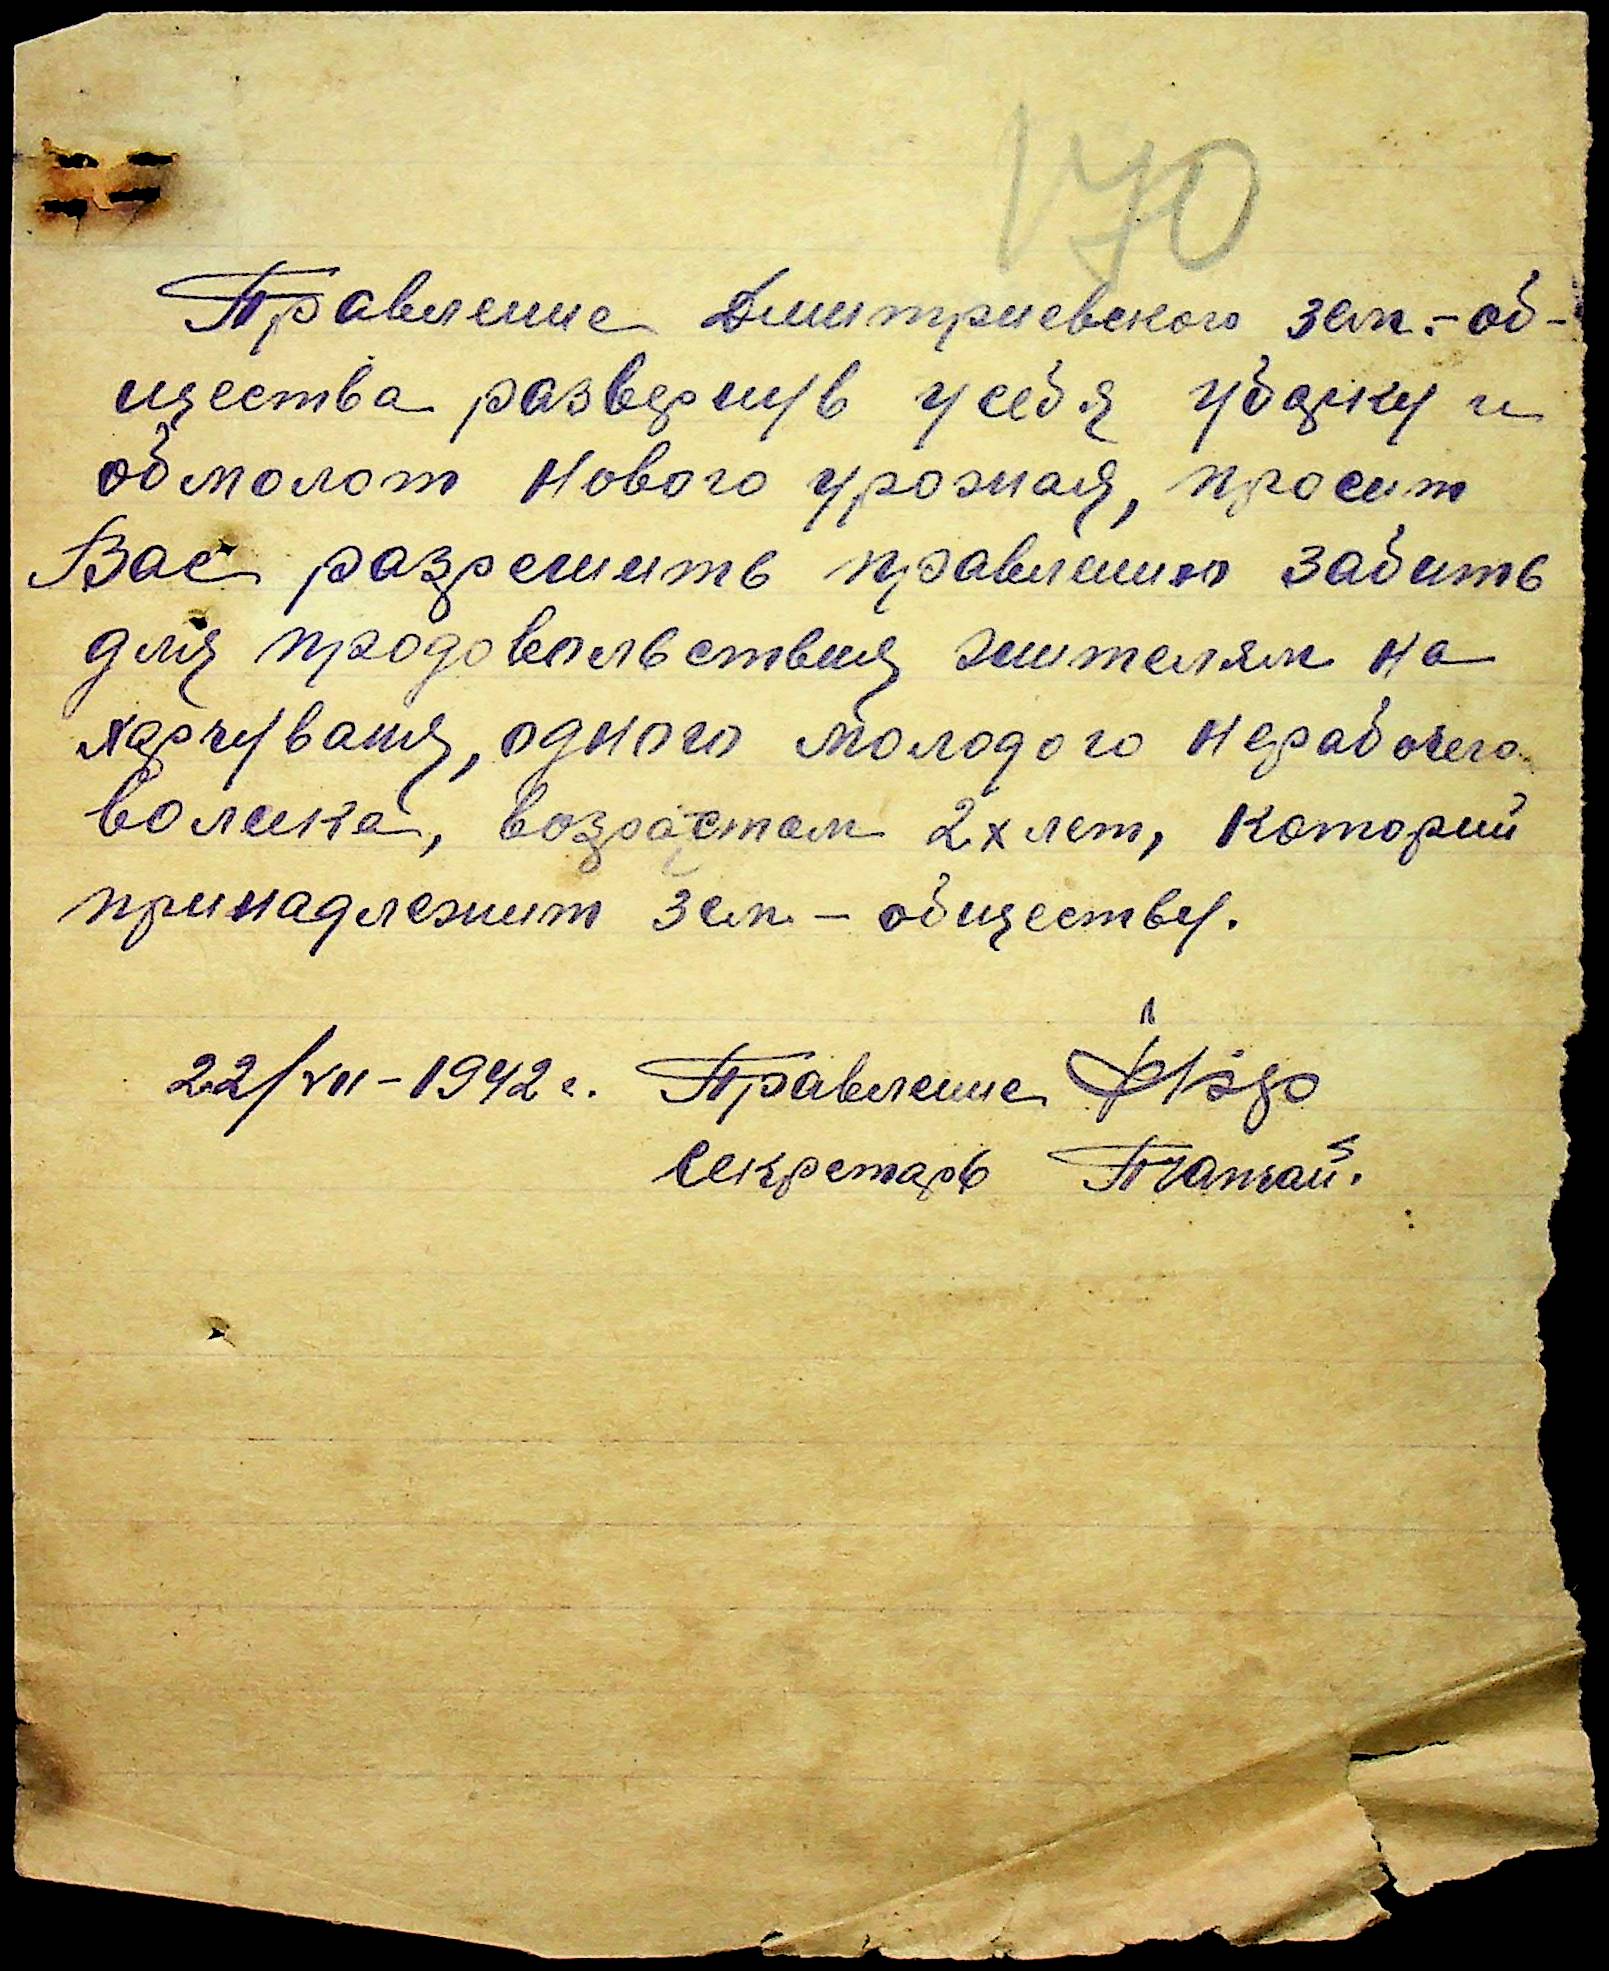 170
Правление Дмитриевского зем.-об-
щества развернув у себя уборку и
обмолот нового урожая, просит
Вас разрешить правлению забить
для продовольствия жителям на
харчуваня, одного молодого нерабочего
волика, возрастом 2х лет, которий
принадлежит зем-обществу.
22/VII-1942 г. Правление
секретарь